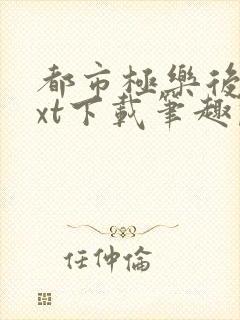 都市極樂後
xt下載筆趣
任仲倫